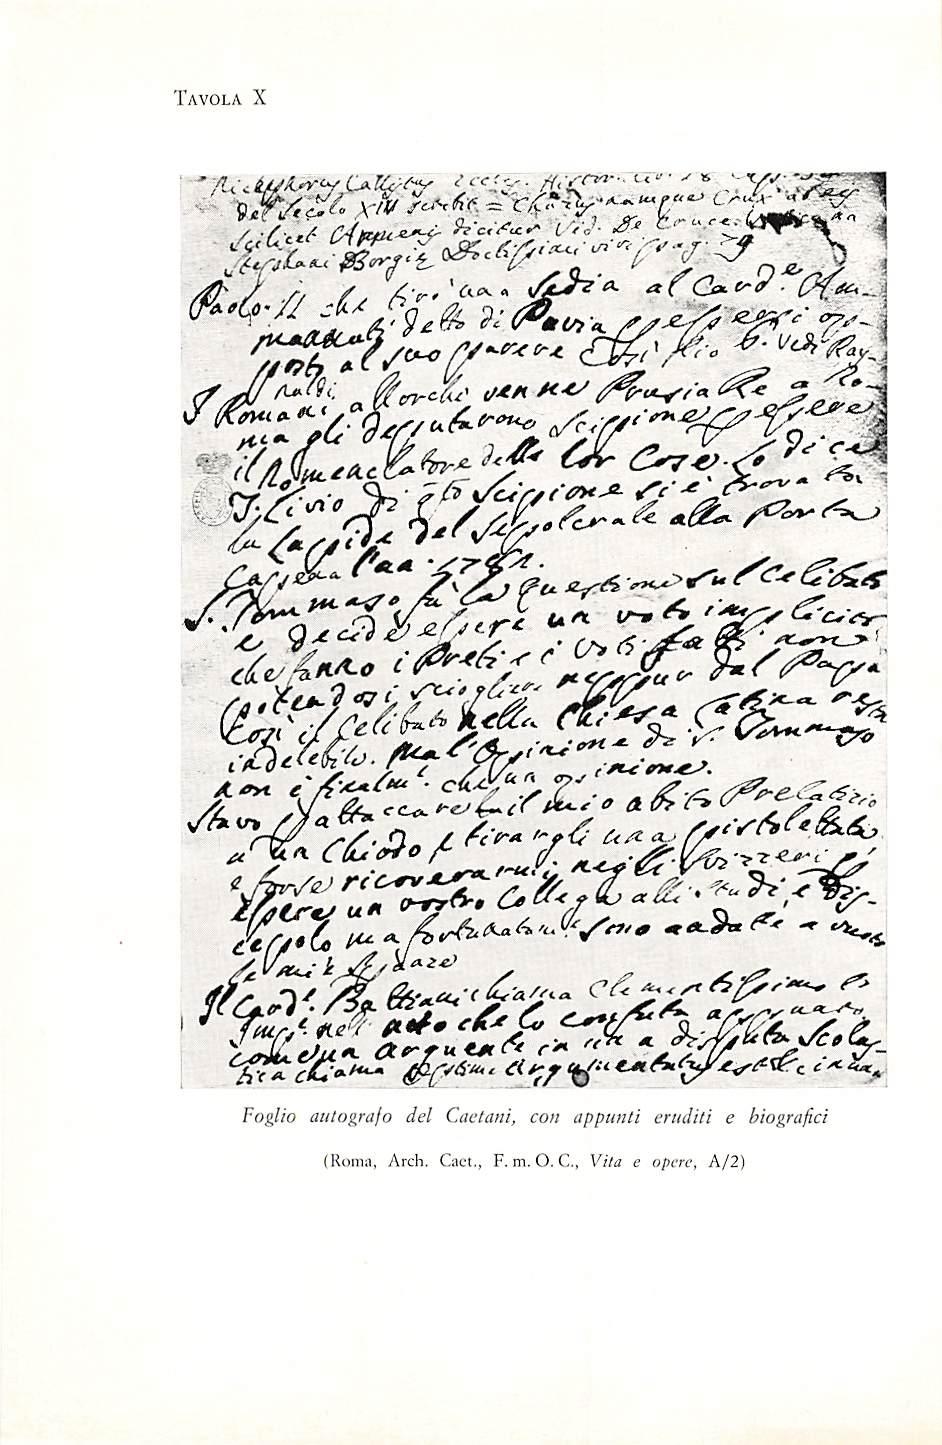 TAVOLA X
del Secolo XIII scribit = namque Crux
Scilicet dicitur Vid. De Cruce
Stephani Borgiæ Doctissimi viri pag. 29
Paolo II che tirò una Sedia al Card.e Am-
mannati detto di Pavia p essersi op-
posto al suo parere Così Pio 6. Vedi Ray-
naldi
I Romani allorchè venne Prusia Re a Ro-
ma gli deputarono Scipione p essere
il Nomenclatore delle lor Cose. Lo dice
T. Livio di Scipione si è trovata
la Lapide del Sepolcrale alla Porta
Capena l'an.
S. Tommaso fà la questione sul Celibato
e decide essere un voto implicito
che fanno i Preti e i Voti fatti non
potendosi sciogliere neppur dal Papa
Così il Celibato nella Chiesa Latina resta
indelebile. Ma l'Opinione di S. Tommaso
non è finalm.e che un opinione.
Stavo p attaccare il mio abito Prelatizio
a un Chiodo e tirargli una pistolettata
e forse ricoverarmi negli Svizzeri p
essere un vostro Collega alli Studi, e Dis-
cepolo ma fortunatam.e sono andate a vuoto
le mie
Il Card.l chiama Clementissimo
nell' atto che lo confuta appunto
come un arguente in una disputa Scolas-
tica chiama argumentatus est
Foglio autografo del Caetani, con appunti eruditi e biografici
(Roma, Arch. Caet., F. m. O. C., Vita e opere, A/2)